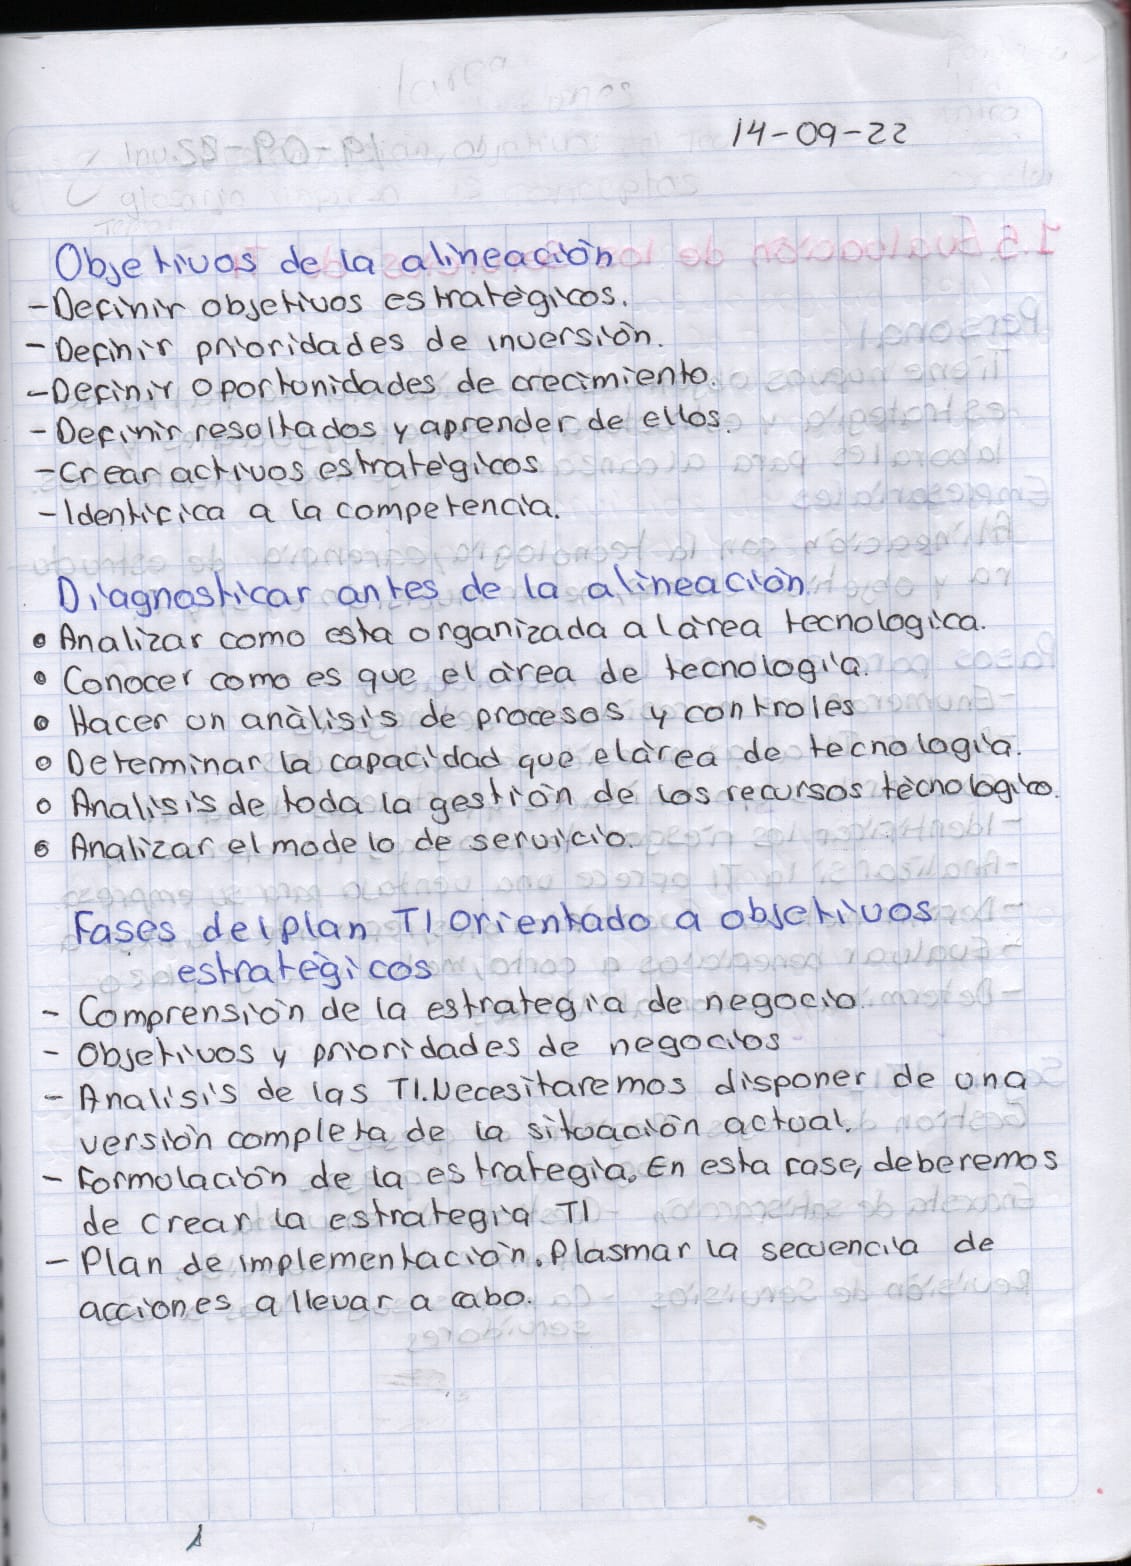 14-09-22
Objetivos de la alineación
-Definir objetivos estratégicos.
-Definir prioridades de inversión.
-Definir oportunidades de crecimiento.
-Definir resultados y aprender de ellos.
-Crear activos estratégicos
-Identifica a la competencia.
Diagnosticar antes de la alineación.
• Analizar como esta organizada al área tecnologica.
• Conocer como es que el área de tecnología.
• Hacer un análisis de procesos y controles
• Determinar la capacidad que el área de tecnología.
• Analísis de toda la gestión de los recursos técnologico.
• Analizar el modelo de servicio.
Fases del plan TI orientado a objetivos
estratégicos
- Comprensión de la estrategia de negocio.
- Objetivos y prioridades de negocios
- Analísis de las TI. Necesitaremos disponer de una
versión completa de la situación actual.
- Formulación de la estrategia. En esta fase, deberemos
de crear la estrategia TI
- Plan de implementación. Plasmar la secuencia de
acciones a llevar a cabo.